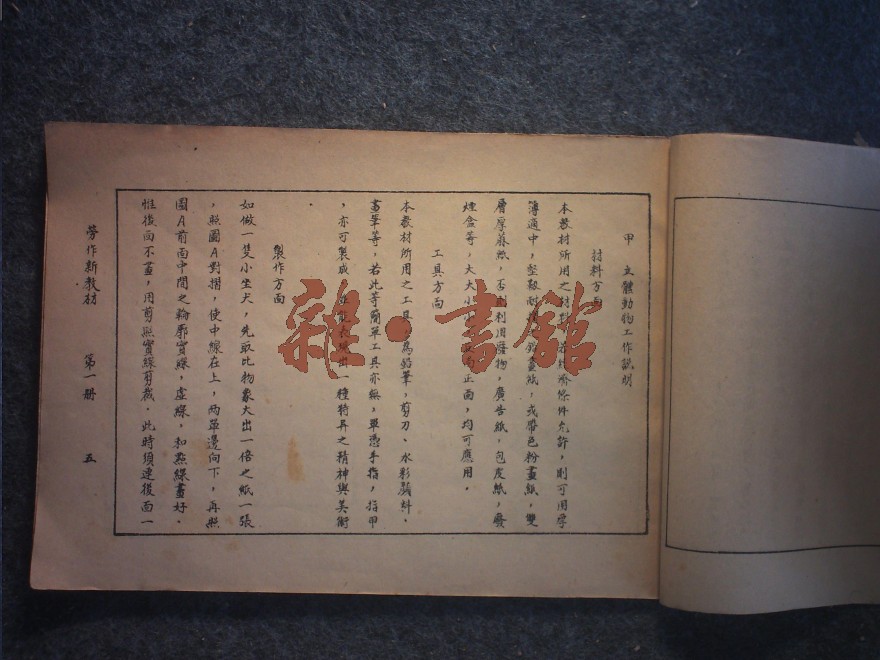 甲　立體動物工作說明
材料方面
本教材所用之材料　若經濟條件允許，則可用厚
薄適中，堅韌耐　鉛畫紙，或帶色粉畫紙，雙
層厚蘇紙，否則利用廢物，廣告紙，包皮紙，廢
煙盒等，大大小小　反面正面，均可應用。
工具方面
本教材所用之工具　為鉛筆，剪刀、水彩顏料、
畫筆等，若此等簡單工具亦無，單憑手指，指甲
，亦可製成　表現出一種特具之精神與美術
。
製作方面
如做一隻小坐犬，先取比物象大出一倍之紙一張
，照圖A對摺，使中線在上，兩單邊向下，再照
圖A前面中間之輪廓實線，虛線，和點線畫好。
惟後面不畫，用剪照實線剪裁。此時須連後面一
勞作新教材　第一冊　五
雜·書館